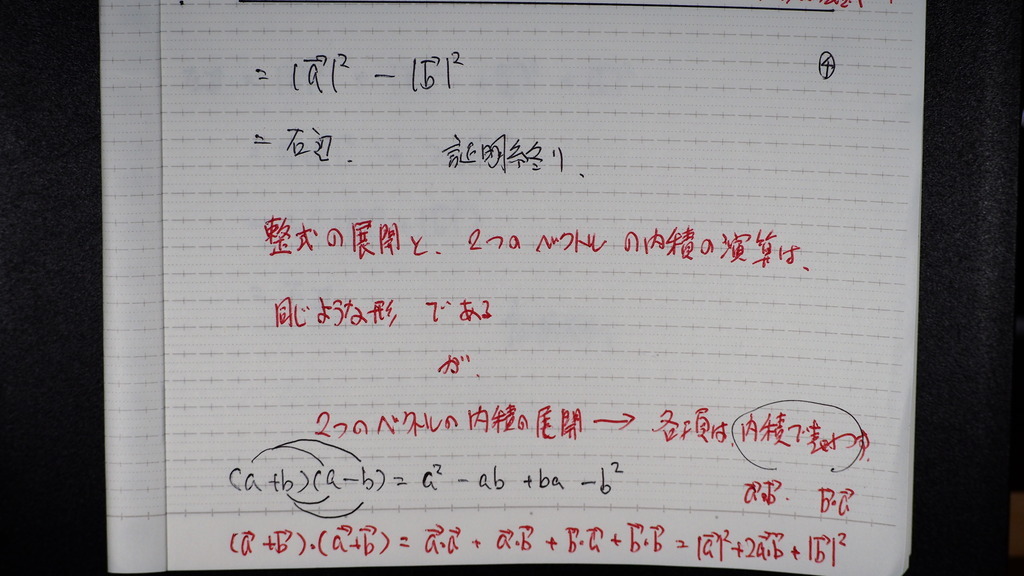 = |a⃗|² − |b⃗|²
④
= 右辺. 証明終り、
整式の展開と、2つのベクトルの内積の演算は、
同じような形である
が、
2つのベクトルの内積の展開 → 各項は、内積で表わす。
(a+b)(a−b) = a² − ab + ba − b²
a⃗·b⃗. b⃗·a⃗
(a⃗+b⃗)·(a⃗+b⃗) = a⃗·a⃗ + a⃗·b⃗ + b⃗·a⃗ + b⃗·b⃗ = |a⃗|²+2a⃗·b⃗+|b⃗|²